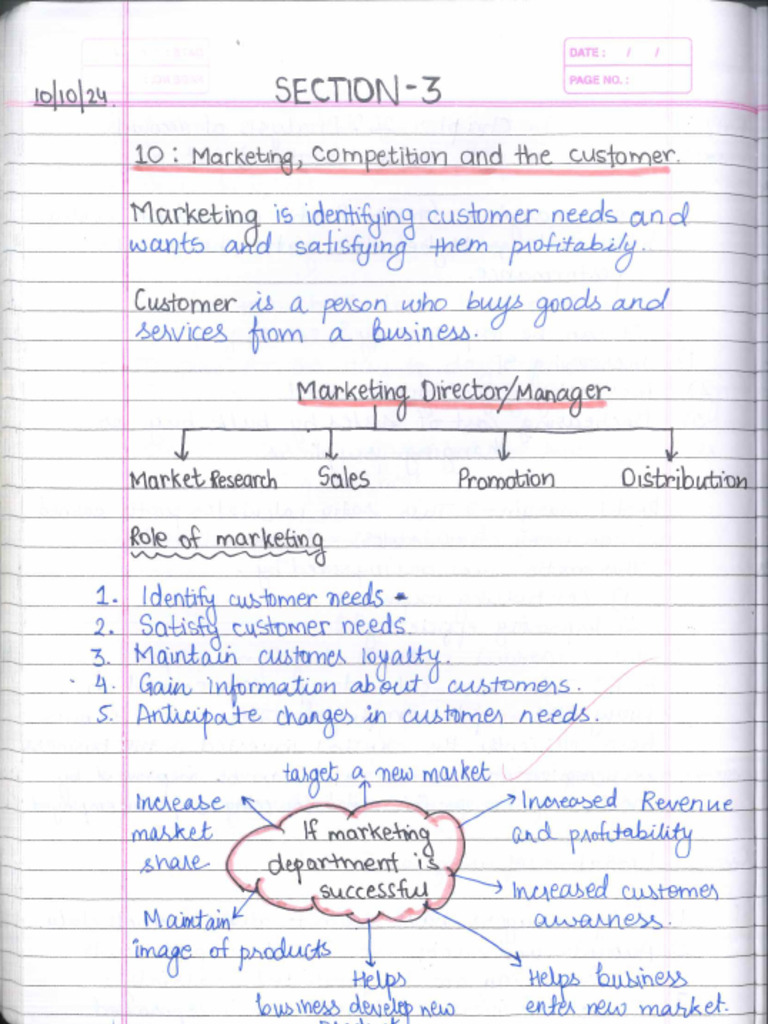 DATE: / /
PAGE NO.:
10/10/24
SECTION-3
10: Marketing, Competition and the customer.
Marketing is identifying customer needs and
wants and satisfying them profitabily.
Customer is a person who buys goods and
services from a business.
Marketing Director/Manager
Market Research Sales Promotion Distribution
Role of marketing
1. Identify customer needs
2. Satisfy customer needs.
3. Maintain customer loyalty.
4. Gain information about customers.
5. Anticipate changes in customer needs.
target a new market
Increase
market
share
Increased Revenue
and profitability
If marketing
department is
successful
Increased customer
awarness.
Maintain
image of products
Helps
business develop new
Helps business
enter new market.